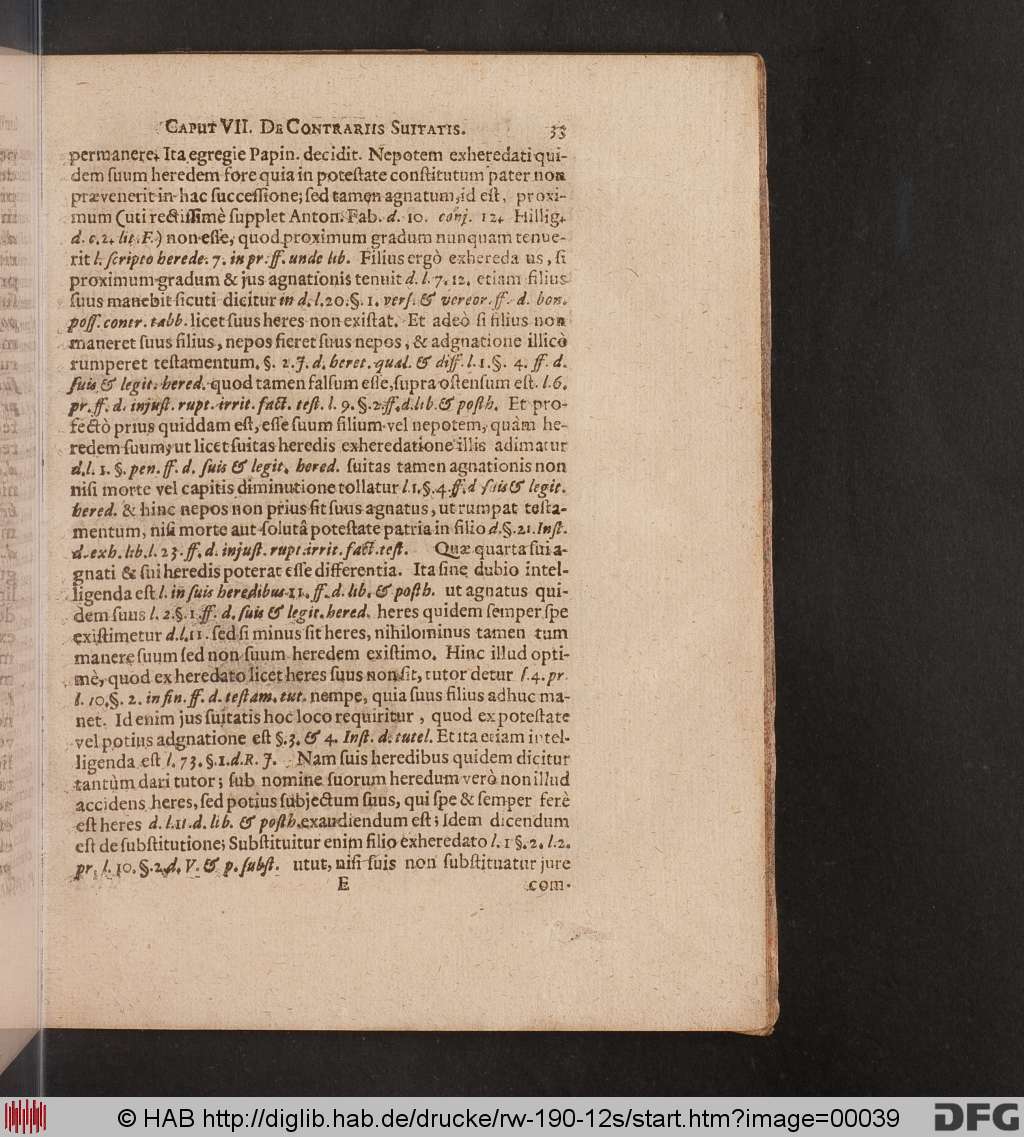 CAPUT VII. DE CONTRARIIS SUITATIS. 33
permanere. Ita egregie Papin. decidit. Nepotem exheredati qui-
dem ſuum heredem fore quia in poteſtate conſtitutum pater non
prævenerit in hac ſucceſſione; ſed tamen agnatum, id eſt, proxi-
mum (uti rectiſſimè ſupplet Anton. Fab. d. 10. conj. 12. Hillig.
d. c. 2. lit. F.) non eſſe, quod proximum gradum nunquam tenue-
rit l. ſcripto herede. 7. in pr. ff. unde lib. Filius ergò exhereda us, ſi
proximum gradum & jus agnationis tenuit d. l. 7. 12. etiam filius
ſuus manebit ſicuti dicitur in d. l. 20. §. 1. verſ. & vereor. ff. d. bon.
poſſ. contr. tabb. licet ſuus heres non exiſtat. Et adeò ſi filius non
maneret ſuus filius, nepos fieret ſuus nepos, & adgnatione illicò
rumperet teſtamentum. §. 2. J. d. heret. qual. & diff. l. 1. §. 4. ff. d.
ſuis & legit. hered. quod tamen falſum eſſe, ſupra oſtenſum eſt. l. 6.
pr. ff. d. injuſt. rupt. irrit. fact. teſt. l. 9. §. 2. ff. d. lib. & poſth. Et pro-
fectò prius quiddam eſt, eſſe ſuum filium vel nepotem, quàm he-
redem ſuum; ut licet ſuitas heredis exheredatione illis adimatur
d. l. 1. §. pen. ff. d. ſuis & legit. hered. ſuitas tamen agnationis non
niſi morte vel capitis diminutione tollatur l. 1. §. 4. ff. d ſuis & legit.
hered. & hinc nepos non prius fit ſuus agnatus, ut rumpat teſta-
mentum, niſi morte aut ſolutâ poteſtate patria in filio d. §. 21. Inſt.
d. exh. lib. l. 23. ff. d. injuſt. rupt. irrit. fact. teſt. Quæ quarta ſui a-
gnati & ſui heredis poterat eſſe differentia. Ita ſine dubio intel-
ligenda eſt l. in ſuis heredibus 11. ff. d. lib. & poſth. ut agnatus qui-
dem ſuus l. 2. §. 1. ff. d. ſuis & legit. hered. heres quidem ſemper ſpe
exiſtimetur d. l. 11. ſed ſi minus ſit heres, nihilominus tamen tum
manere ſuum ſed non ſuum heredem exiſtimo. Hinc illud opti-
mè, quod exheredato licet heres ſuus non ſit, tutor detur l. 4. pr.
l. 10. §. 2. in fin. ff. d. teſtam. tut. nempe, quia ſuus filius adhuc ma-
net. Id enim jus ſuitatis hoc loco requiritur, quod ex poteſtate
vel potius adgnatione eſt §. 3. & 4. Inſt. d. tutel. Et ita etiam intel-
ligenda eſt l. 73. §. 1. d. R. J. Nam ſuis heredibus quidem dicitur
tantùm dari tutor; ſub nomine ſuorum heredum verò non illud
accidens heres, ſed potius ſubjectum ſuus, qui ſpe & ſemper ferè
eſt heres d. l. 11. d. lib. & poſth. exaudiendum eſt; Idem dicendum
eſt de ſubſtitutione; Subſtituitur enim filio exheredato l. 1 §. 2. l. 2.
pr. l. 10. §. 2. d. V. & p. ſubſt. utut, niſi ſuis non ſubſtituatur jure
E com-
© HAB http://diglib.hab.de/drucke/rw-190-12s/start.htm?image=00039
DFG